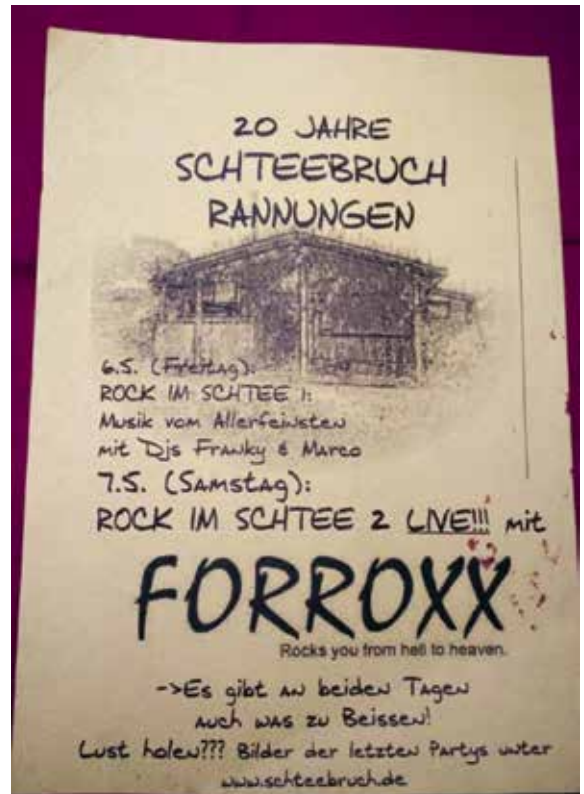 20 JAHRE
SCHTEEBRUCH
RANNUNGEN
6.5. (Freitag):
ROCK IM SCHTEE 1:
Musik vom Allerfeinsten
mit Djs Franky & Marco
7.5. (Samstag):
ROCK IM SCHTEE 2 LIVE!!! mit
FORROXX
Rocks you from hell to heaven.
->Es gibt an beiden Tagen
auch was zu Beissen!
Lust holen??? Bilder der letzten Partys unter
www.schteebruch.de